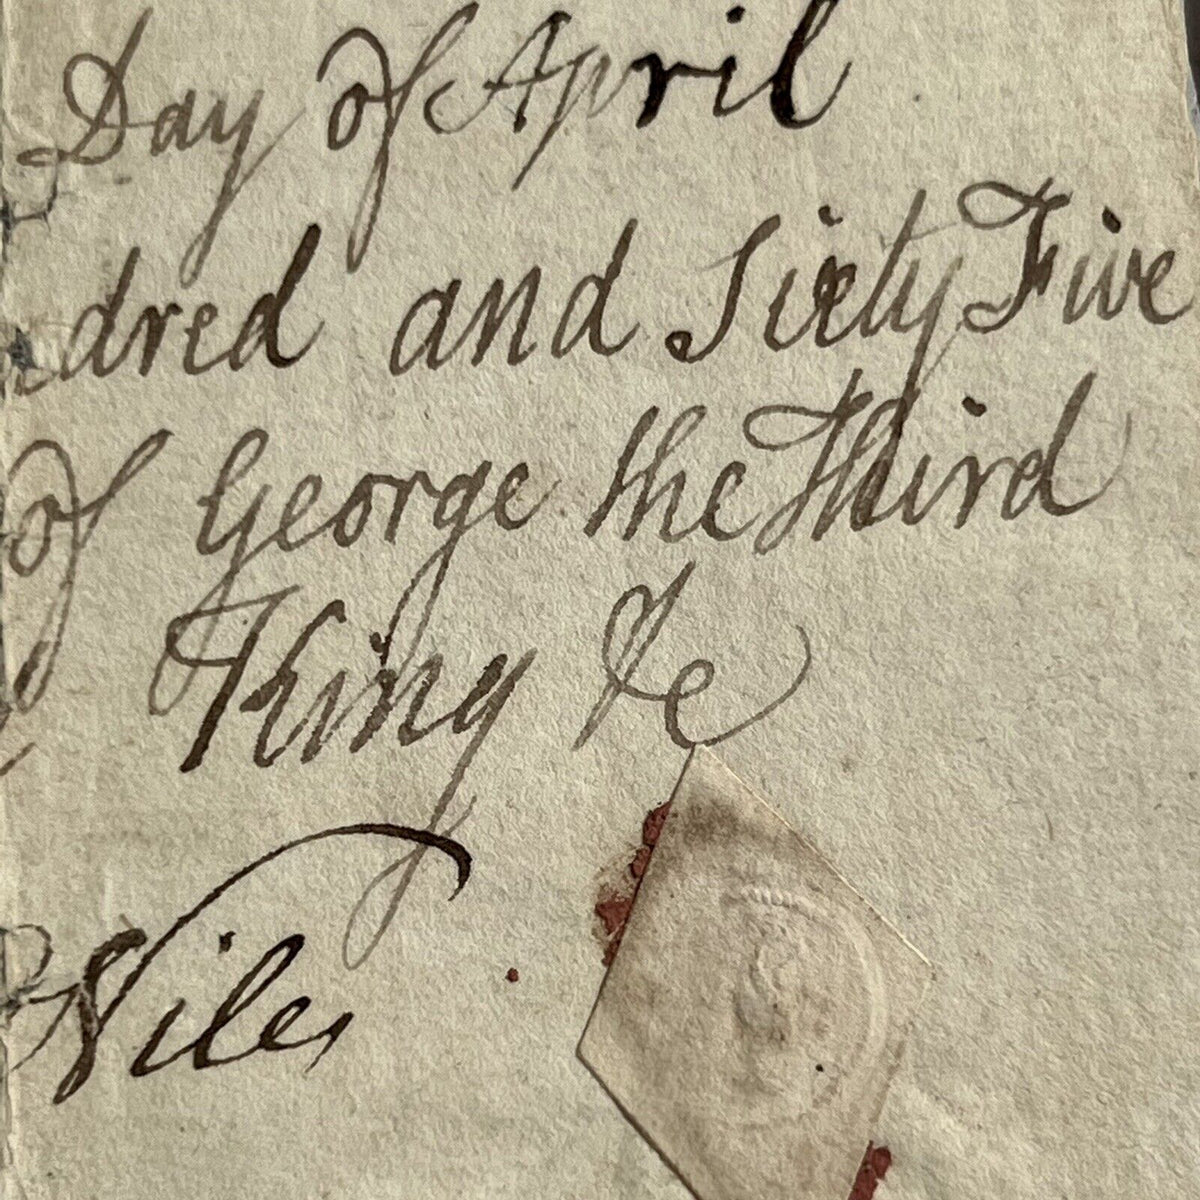 Day of April
dred and Sixty Five
of George the Third
King &c
Niles